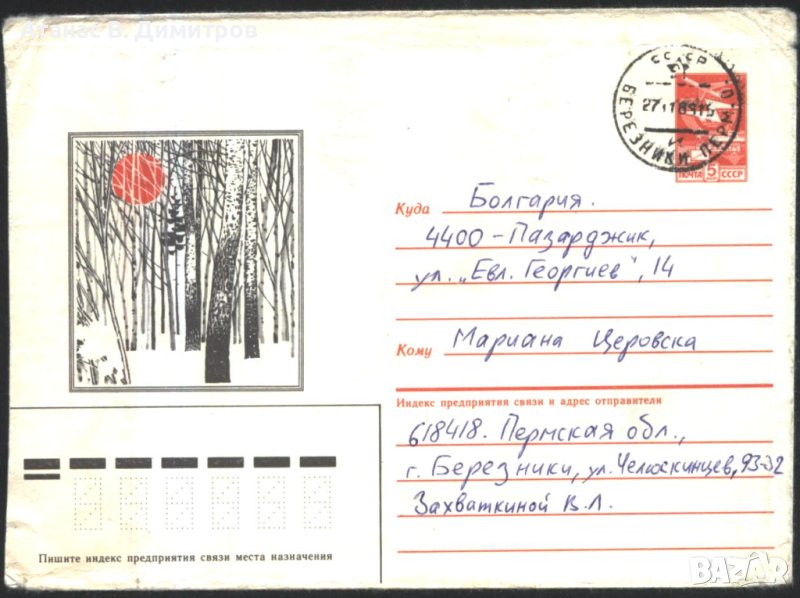 Атанас В. Димитров
СССР
БЕРЕЗНИКИ ПЕРМ. О.
ПОЧТА 5 СССР
Куда Болгария.
4400 - Пазарджик,
ул. „Евл. Георгиев", 14
Кому Мариана Церовска
Индекс предприятия связи и адрес отправителя
618418. Пермская обл.,
г. Березники, ул. Челюскинцев, 93-32
Захваткиной В.Л.
Пишите индекс предприятия связи места назначения
BAZAR